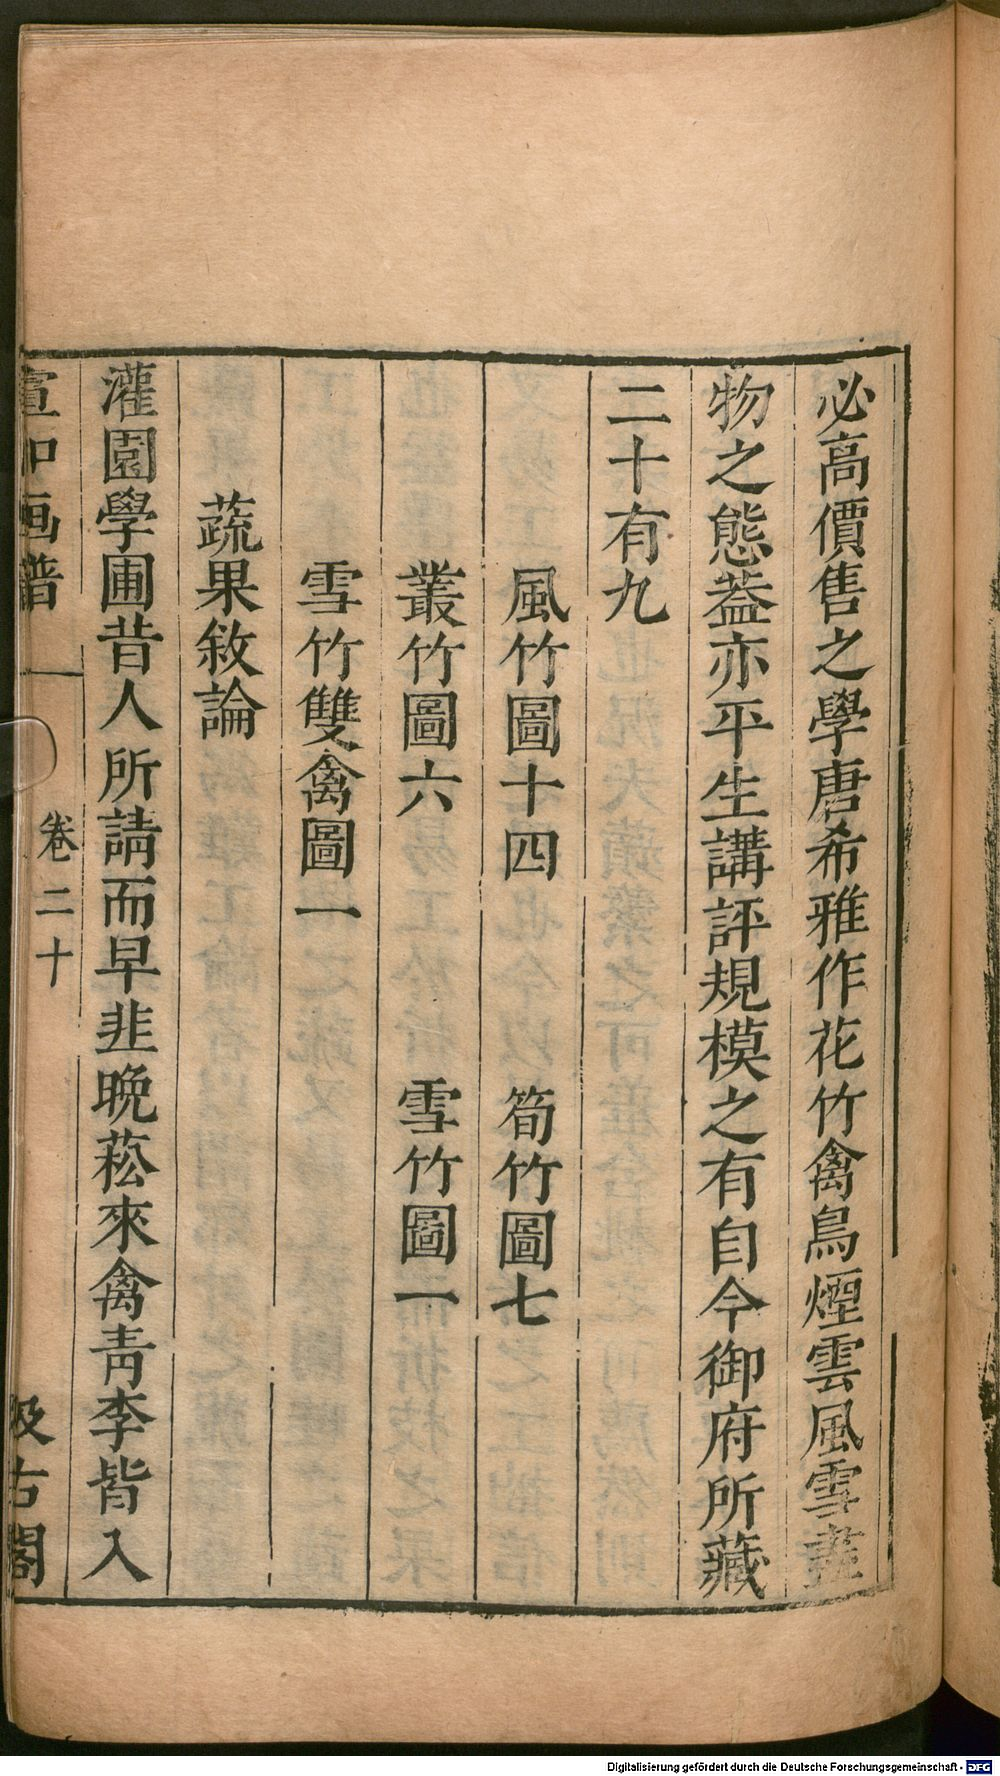 必高價售之學唐希雅作花竹禽鳥煙雲風雪盡
物之態葢亦平生講評規模之有自今御府所藏
二十有九
風竹圖十四 筍竹圖七
叢竹圖六 雪竹圖一
雪竹雙禽圖一
蔬果敘論
灌園學圃昔人所請而早韭晚菘來禽青李皆入
宣和画譜 卷二十 汲古閣
Digitalisierung gefördert durch die Deutsche Forschungsgemeinschaft - DFG